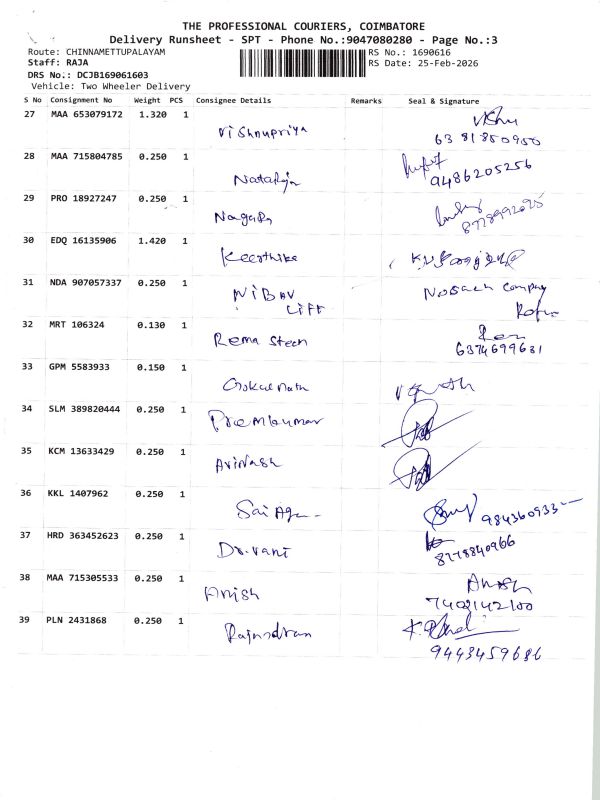 THE PROFESSIONAL COURIERS, COIMBATORE
Delivery Runsheet - SPT - Phone No.:9047080280 - Page No.:3
Route: CHINNAMETTUPALAYAM RS No.: 1690616
Staff: RAJA RS Date: 25-Feb-2026
DRS No.: DCJB169061603
Vehicle: Two Wheeler Delivery
S No Consignment No Weight PCS Consignee Details Remarks Seal & Signature
27 MAA 653079172 1.320 1 Vishnupriya
63 81 850950
28 MAA 715804785 0.250 1 Nataraja
9486205256
29 PRO 18927247 0.250 1
30 EDQ 16135906 1.420 1 Keerthika
31 NDA 907057337 0.250 1 NIBAV LIFT
Company
32 MRT 106324 0.130 1 Rema Steen
6374699631
33 GPM 5583933 0.150 1 Gokulnath
34 SLM 389820444 0.250 1 Premkumar
35 KCM 13633429 0.250 1 Avinash
36 KKL 1407962 0.250 1 Sai
37 HRD 363452623 0.250 1 Dr.vani
8778840966
38 MAA 715305533 0.250 1 Anish
39 PLN 2431868 0.250 1
9443459686